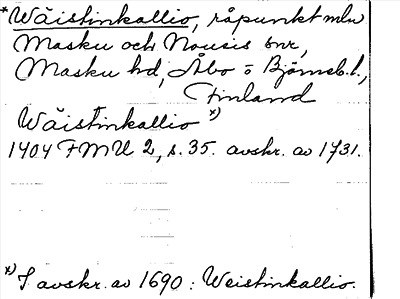 *Wäistinkallio, råpunkt mln
Masku och Nousis snr,
Masku hd, Åbo o Björneb. l.,
Finland
Wäistinkallio x)
1404 FMU 2, s. 35. avskr. av 1731.
x) I avskr. av 1690: Weistinkallio.